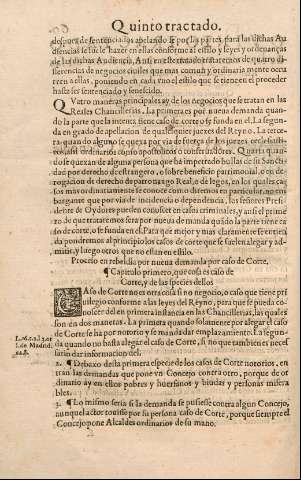 Quinto tractado.
despues de sentenciadas apelando se por las partes, para las dichas Au
diencias se suele hazer en ellas conforme al estilo y leyes y ordenanças
de las dichas Audiencia. Assi en este tratado trataremos de quatro di
fferencias de negocios ciuiles que mas comun y ordinaria mente ocu
rren a ellas, poniendo en cada vno el estilo que se tienen el proceder
hasta ser sentenciado y fenescido.
QVatro maneras principales ay de los negocios que se tratan en las
Reales Chancillerias. La primera es por nueua demanda quan-
do la parte que la intenta tiene caso de corte o se funda en el. La segun
da en grado de apelacion de qualesquier juezes del Reyno. La terce-
ra quando alguno se quexa por via de fuerça de los juezes eclesiasti-
cos ordinarios como apostolicos o conseruadores. Quarta quan-
do se quexan de alguna persona que ha impetrado bullas de su Sancti-
dad por derecho de estrangero, o sobre beneficio patrimonial, o en de-
rogacion de derecho de patronazgo Real, o de legos, en los quales ca-
sos mas ordinariamente se conoce como diremos en particular, no em
bargante que por via de incidencia o dependencia, los señores Presi-
dentes de Oydores pueden conoscer en casos criminales, y assi el prime
ro de que trataremos sera por nueua demanda quando la parte tiene ca
so de corte, o se funda en el. Para que mejor y mas claramente se entien
da pondremos al principio los casos de corte que se suelen alegar y ad-
mitir, y luego otros que no estan en estilo.
Processo en rebeldia por nueua demanda por caso de Corte.
¶ Capitulo primero, que cosa es caso de
Corte, y de las species dellos
CAso de Corte no es otra cosa si no negocio, o caso que tiene pri
uilegio conforme a las leyes del Reyno, para que se pueda co-
noscer del en primera instancia en las Chancillerias, las quales
son en dos maneras. La primera quando solamente por alegar el caso
de Corte se ha por notorio y se manda dar emplazamiento. La segun-
da quando no basta alegar el caso de Corte, si no que tambien es neces
sario dar informacion del.
2. ¶ Debaxo desta primera especie de los casos de Corte notorios, en-
tran las demandas que pone vn Concejo contra otro, porque de or
dinario ay en ellos pobres y huerfanos y biudas y personas misera
bles.
3. ¶ Lo mismo seria si la demanda se pusiesse contra algun Concejo,
aunque el actor touiesse por su persona caso de Corte, porque siempre el
Concejo pone Alcaldes ordinarios de su mano.